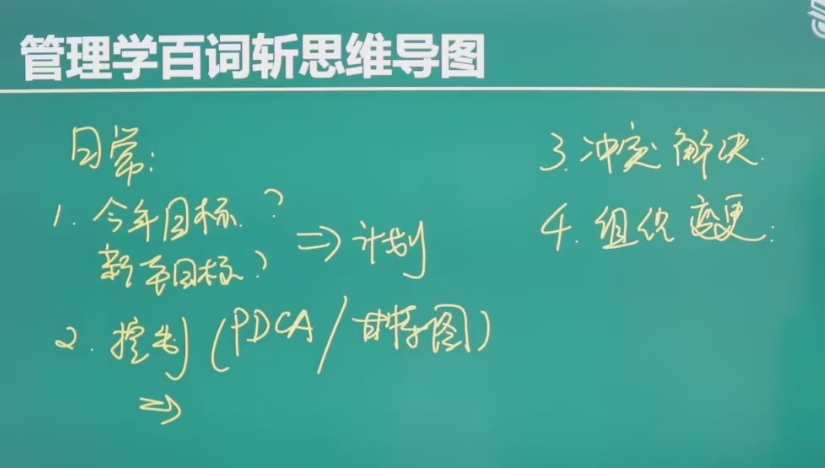 管理学百词斩思维导图
日常:
1. 今年目标?
新年目标? ⇒ 计划
2. 控制 (PDCA / 甘特图)
⇒
3. 冲突解决.
4. 组织变更: